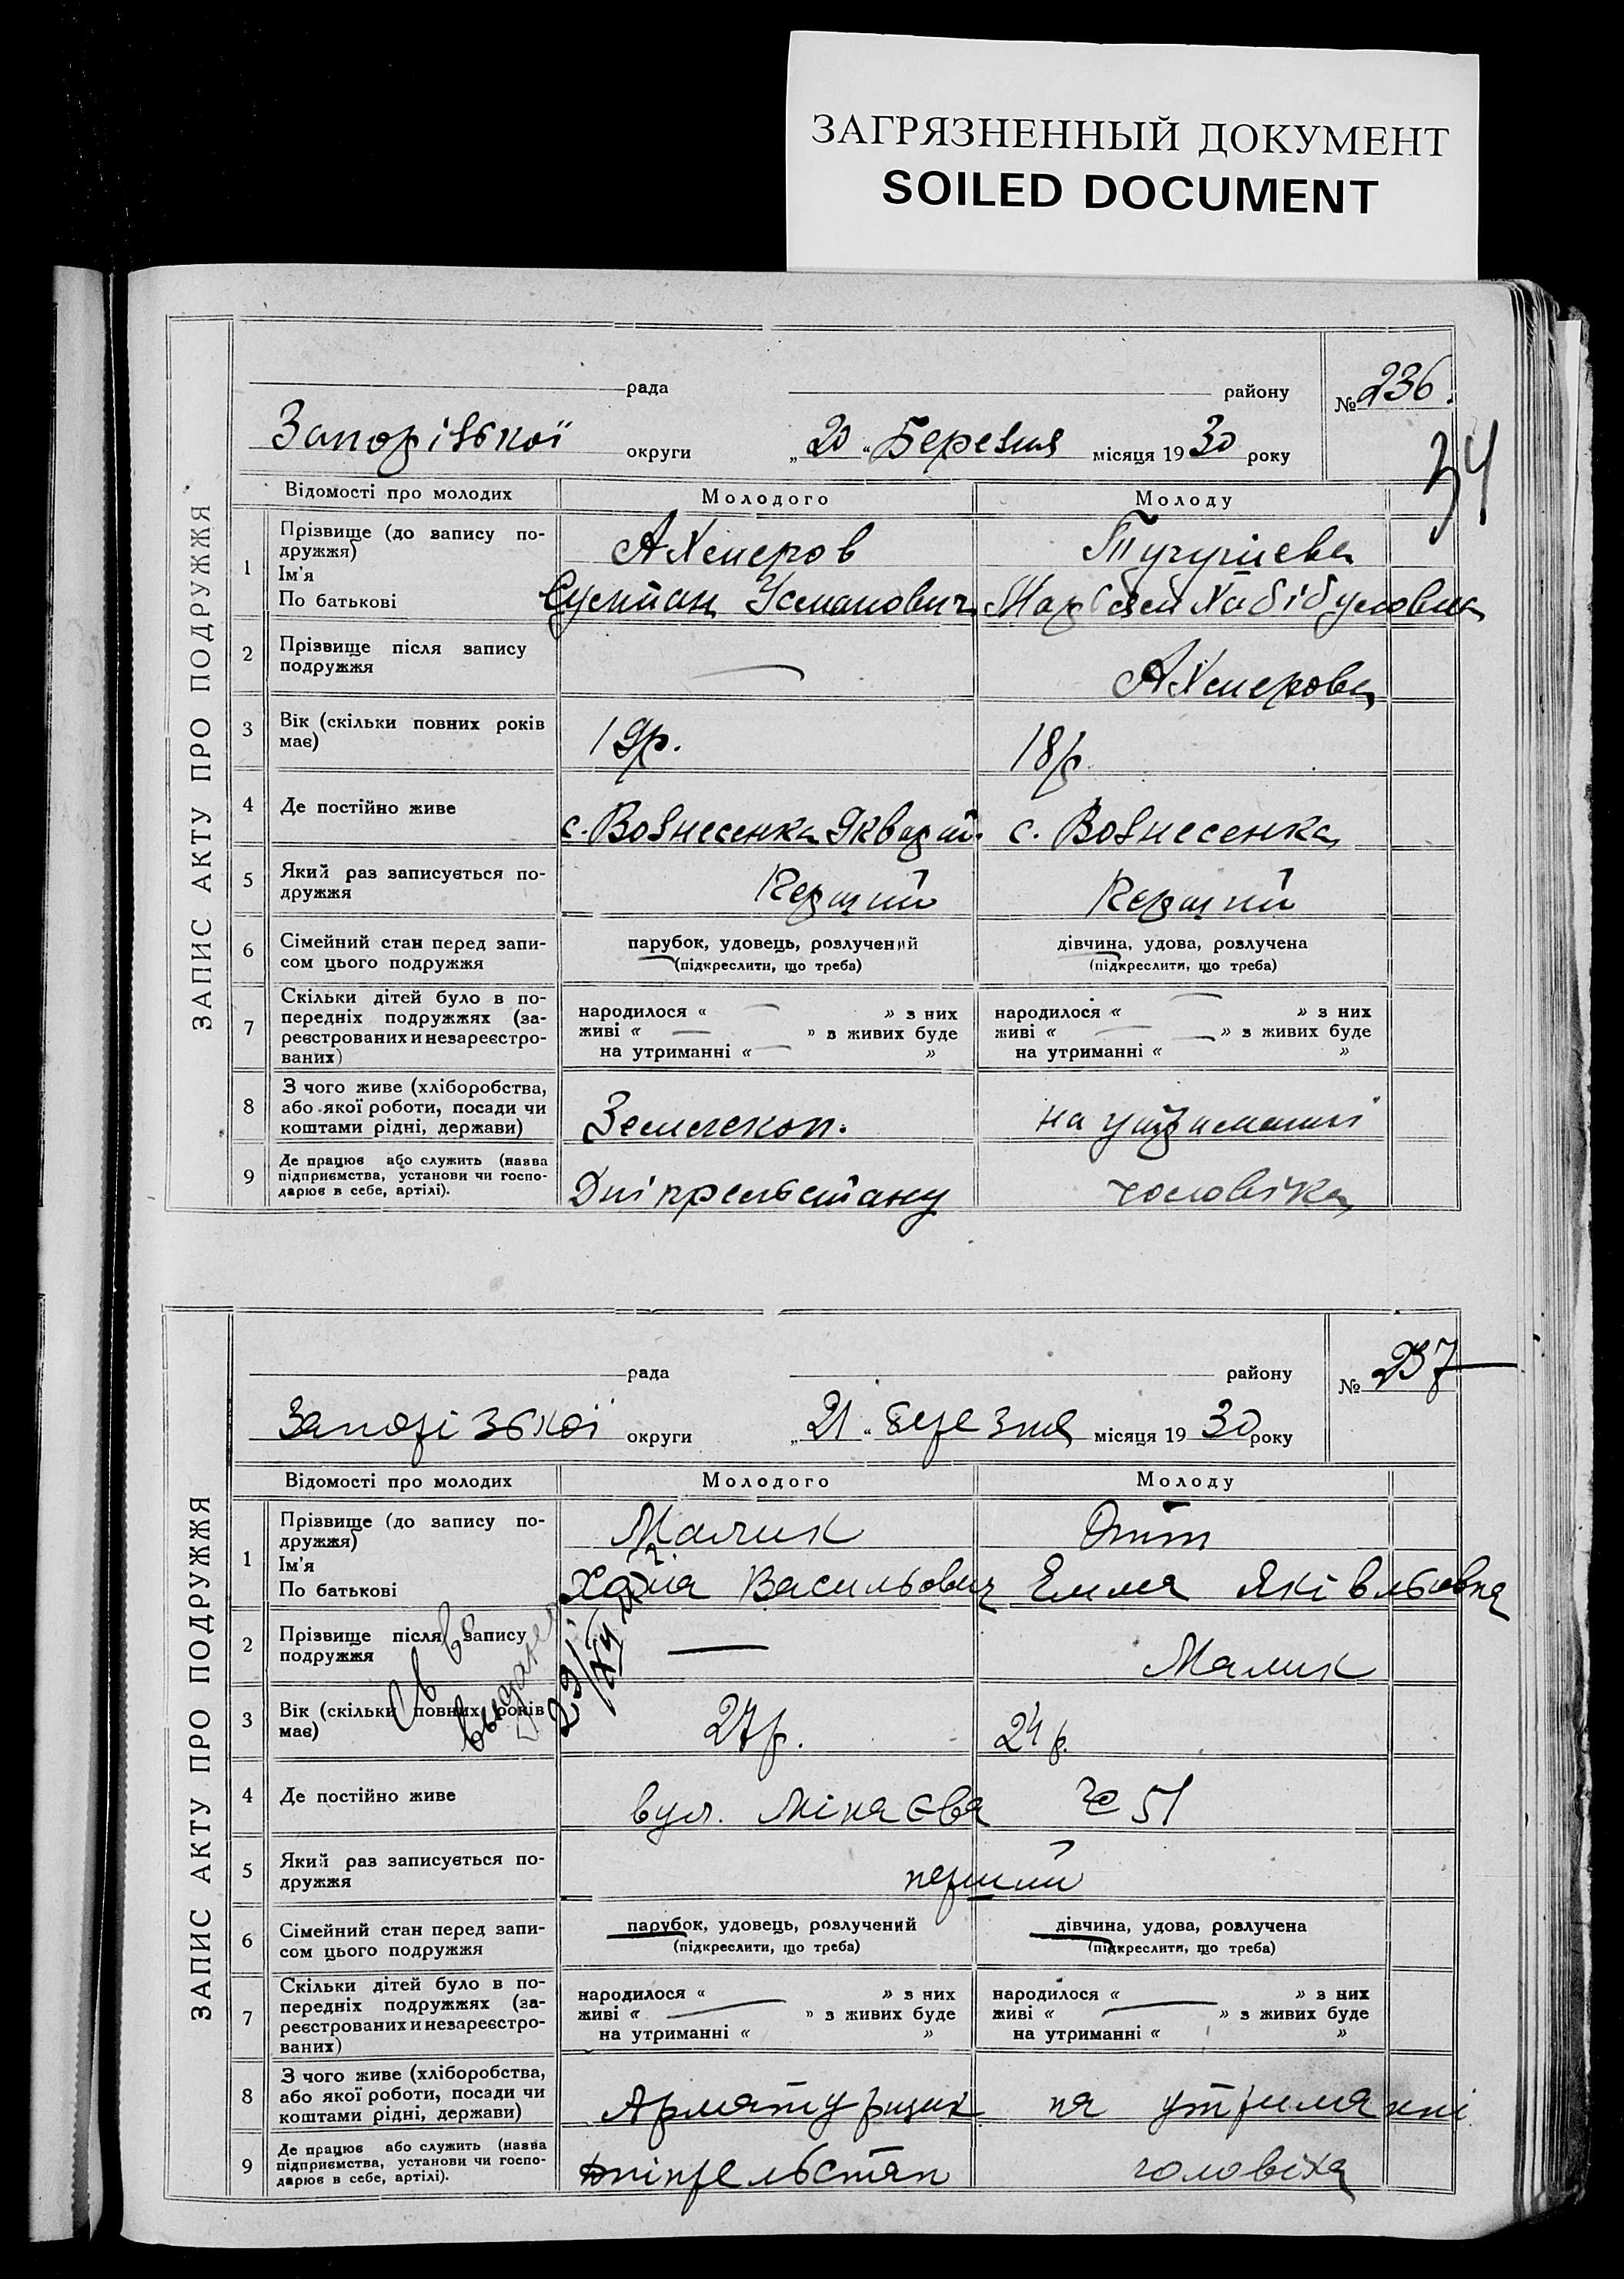 ЗАГРЯЗНЕННЫЙ ДОКУМЕНТ
SOILED DOCUMENT
ЗАПИС АКТУ ПРО ПОДРУЖЖЯ
рада району № 236.
Запорізької округи „20“ Березня місяця 1930 року
34
Відомості про молодих Молодого Молоду
1 Прізвище (до запису подружжя)
Ім'я
По батькові
Султан Усманович
2 Прізвище після запису
подружжя —
3 Вік (скільки повних років
має) 19р. 18р
4 Де постійно живе с. Вознесенка с. Вознесенка
5 Який раз записується по-
дружжя Перший Перший
6 Сімейний стан перед запи-
сом цього подружжя
парубок, удовець, розлучений дівчина, удова, розлучена
(підкреслити, що треба) (підкреслити, що треба)
7 Скільки дітей було в по-
передніх подружжях (за-
реєстрованих и незареєстро-
ваних)
народилося « — » з них народилося « — » з них
живі « — » з живих буде живі « — » з живих буде
на утриманні « — » на утриманні « »
8 З чого живе (хліборобства,
або якої роботи, посади чи
коштами рідні, держави) Землекоп. на утриманні
9 Де працює або служить (назва
підприємства, установи чи госпо-
дарює в себе, артілі). Дніпрельстану чоловіка
ЗАПИС АКТУ ПРО ПОДРУЖЖЯ
рада району № 237
Запорізької округи „21“ березня місяця 1930 року
Відомості про молодих Молодого Молоду
1 Прізвище (до запису по-
дружжя) Малик Отт
Ім'я
По батькові Васильович Емма Яківльовна
2 Прізвище після запису
подружжя — Малик
3 Вік (скільки повних років
має) 27р. 24р.
4 Де постійно живе вул. Мінаєва № 51
5 Який раз записується по-
дружжя перший
6 Сімейний стан перед запи-
сом цього подружжя
парубок, удовець, розлучений дівчина, удова, розлучена
(підкреслити, що треба) (підкреслити, що треба)
7 Скільки дітей було в по-
передніх подружжях (за-
реєстрованих и незареєстро-
ваних)
народилося « » з них народилося « » з них
живі « — » з живих буде живі « — » з живих буде
на утриманні « » на утриманні « »
8 З чого живе (хліборобства,
або якої роботи, посади чи
коштами рідні, держави) Арматурщик на утриманні
9 Де працює або служить (назва
підприємства, установи чи госпо-
дарює в себе, артілі). Дніпрельстан чоловіка